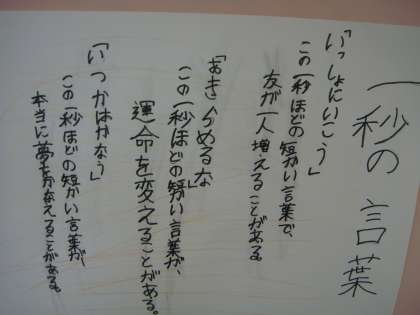 一秒の言葉
「いっしょにいこう」
この一秒ほどの短かい言葉で、
友が一人増えることがある
「あきらめるな」
この一秒ほどの短かい言葉が、
運命を変えることがある。
「いつかはかなう」
この一秒ほどの短かい言葉が、
本当に夢をかなえることがある。